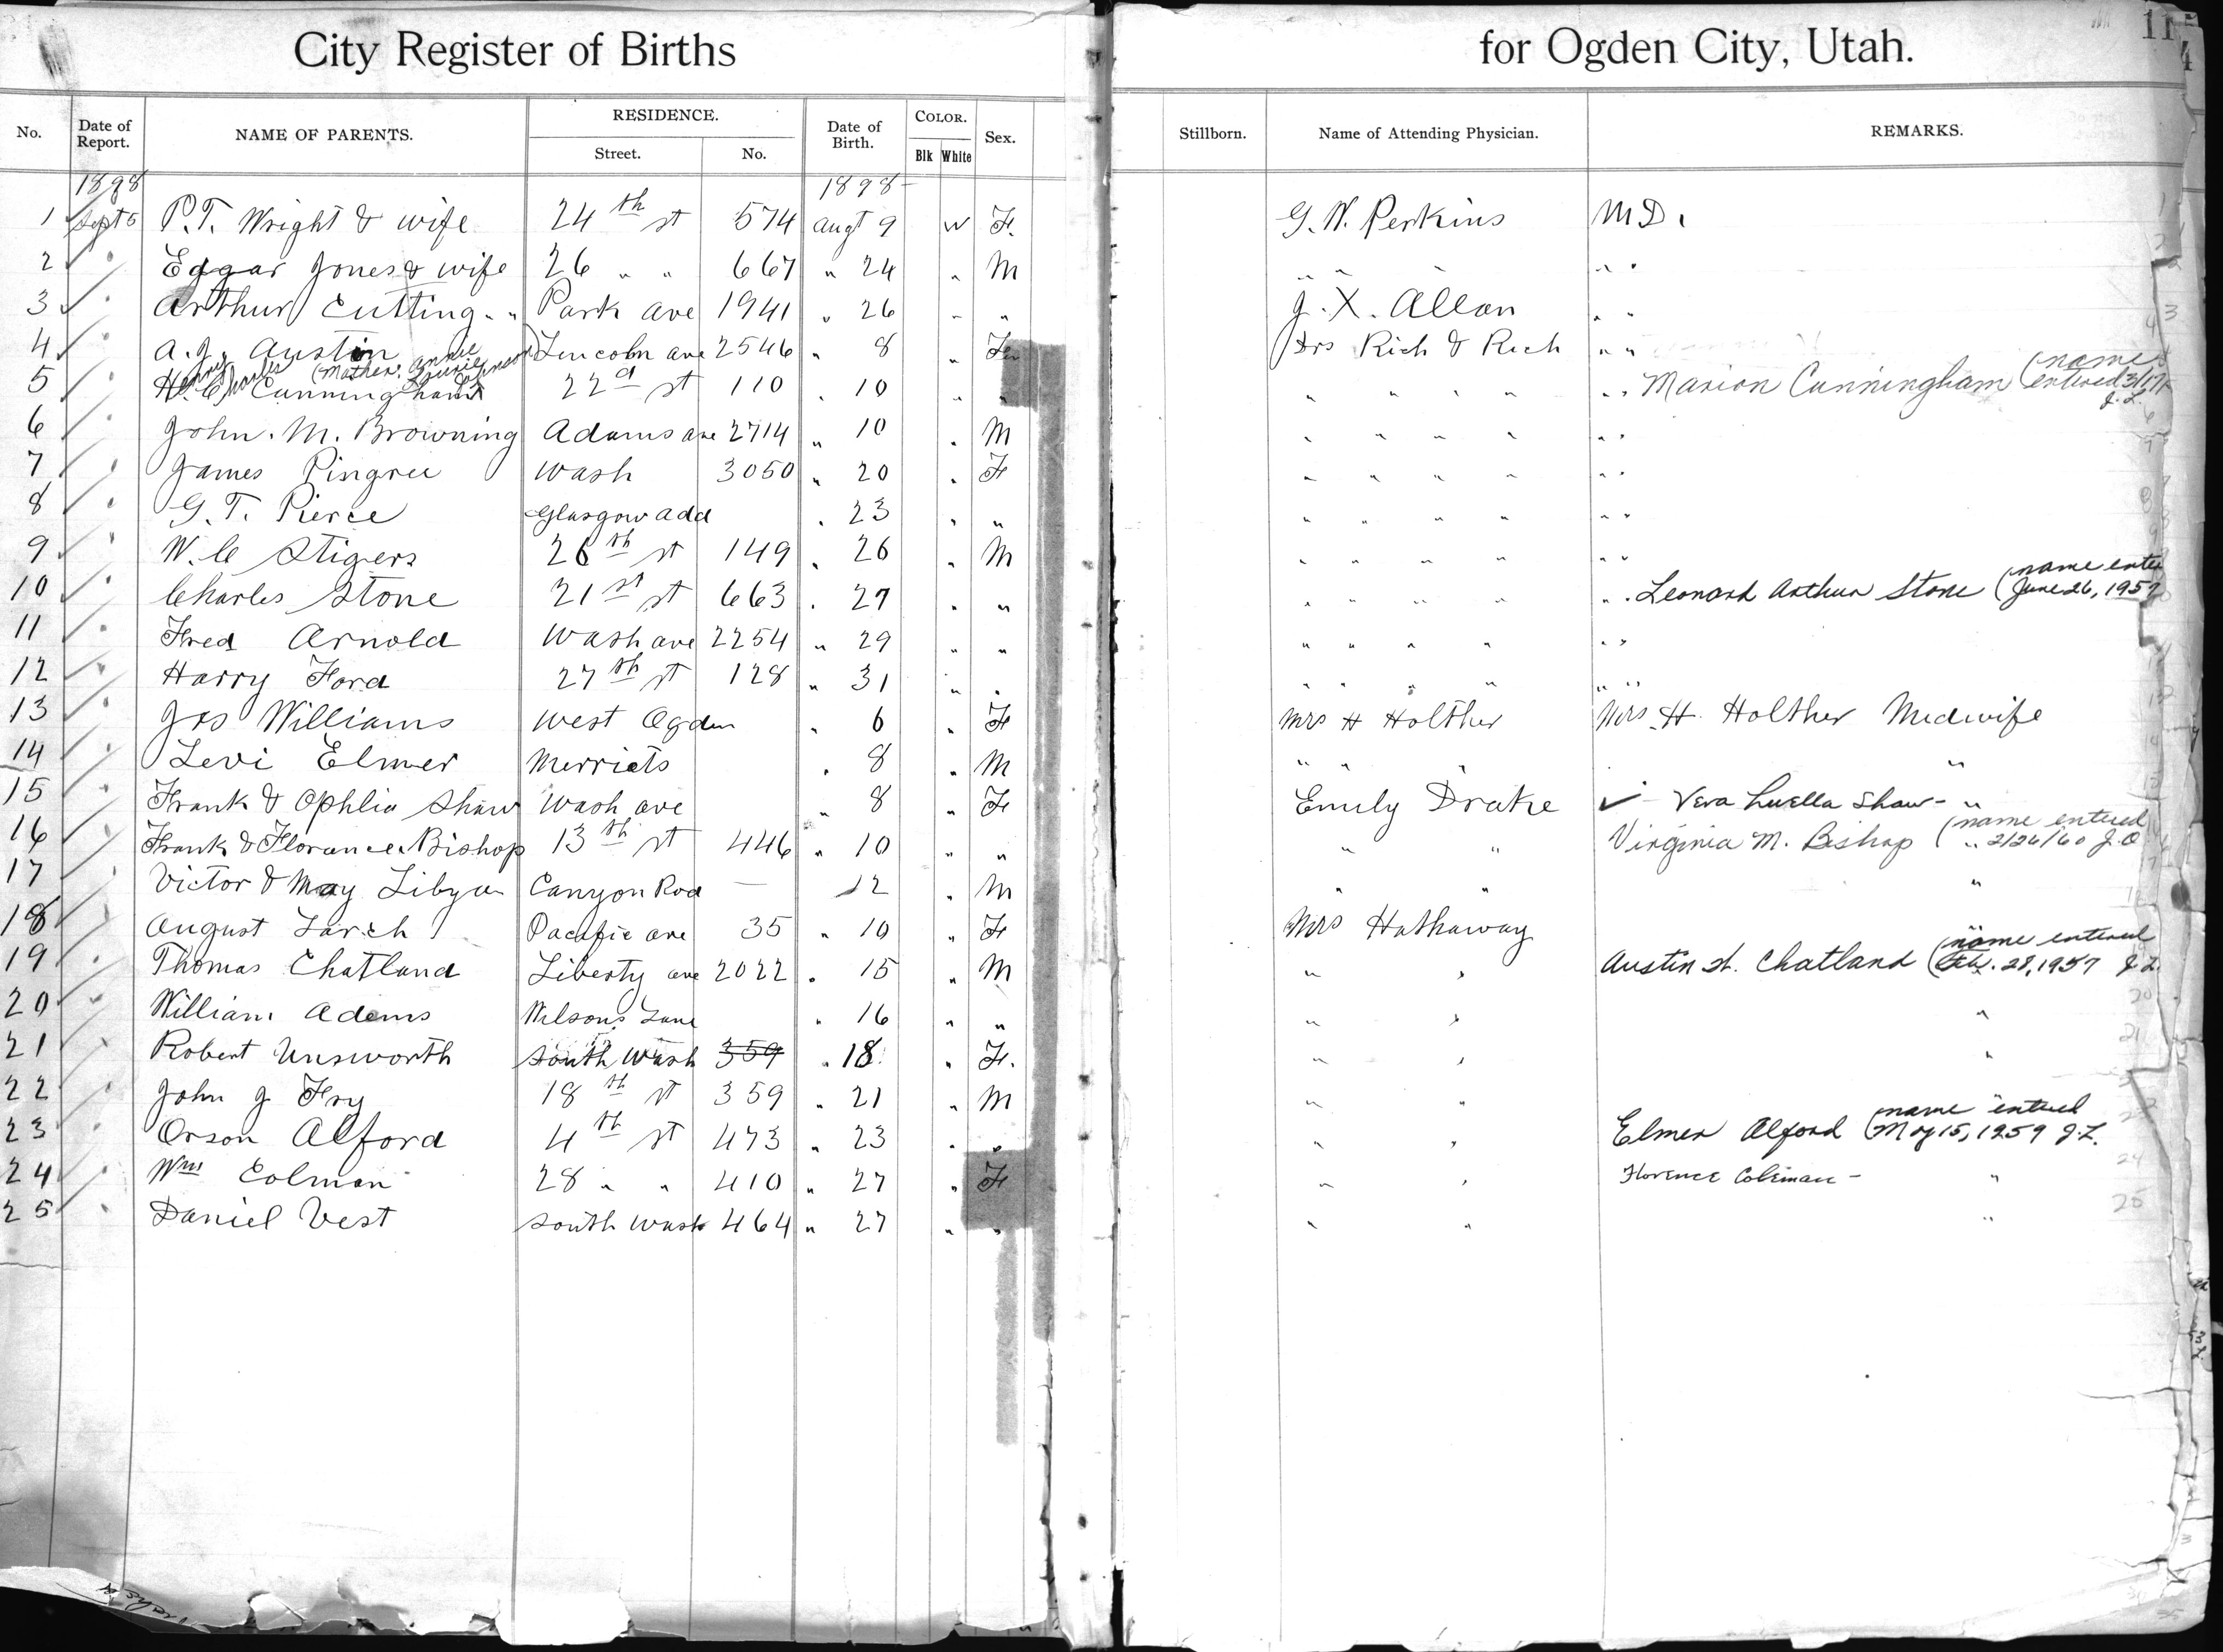 City Register of Births for Ogden City, Utah.
No. Date of Report. NAME OF PARENTS. RESIDENCE. Street. No. Date of Birth. COLOR. Blk White Sex. Stillborn. Name of Attending Physician. REMARKS.
1898 1898
1 Sept 5 P.T. Wright & wife 24th st 574 Augt 9 W F. G. W. Perkins M D.
2 " Edgar Jones & wife 26 " " 667 " 24 " M " " " " "
3 " Arthur Cutting " " Park Ave 1941 " 26 " " J. X. Allen " "
4 " A. J. Austin Lincoln ave 2546 " 8 " Drs Rich & Rich " "
Henry Charles (Mother. Annie Johnson)
5 " H. C. Cunningham 22d st 110 " 10 " " " " " " " " Marion Cunningham (name entered
J. L.
6 " John. M. Browning Adams ave 2714 " 10 " M " " " " " "
7 " James Pingree Wash 3050 " 20 " F " " " " " "
8 " G. T. Pierce Glasgow add " 23 " " " " " " " "
9 " W. C Stigers 26th st 149 " 26 " M " " " " " "
10 " Charles Stone 21st st 663 " 27 " " " " " " " " Leonard Arthur Stone (name ente June 26, 1957
11 " Fred Arnold Wash ave 2254 " 29 " " " " " " " "
12 " Harry Ford 27th st 128 " 31 " " " " " " " "
13 " Jos Williams West Ogden " 6 " F Mrs H Holther Mrs. H. Holther Midwife
14 " Levi Elmer Merriets " 8 " M " " " "
15 " Frank & Ophlia Shaw Wash ave " 8 " F Emily Drake ✓ Vera Luella Shaw - "
16 " Frank & Florance Bishop 13th st 446 " 10 " " " " Virginia M. Bishop (name entered " 2/26/60 J.O
17 " Victor & May Canyon Rod — 12 " M " " "
18 " August Larch Pacific ave 35 " 10 " F Mrs Hathaway "
19 " Thomas Chatland Liberty ave 2022 " 15 " M " " Austin H. Chatland (name entered Feb. 28, 1957 J.L.
20 " William Adams Wilsons Lane " 16 " " " " "
21 " Robert Unsworth South Wash 359 " 18 " F. " " "
22 " John J Fry 18th st 359 " 21 " M " " "
23 " Orson Alford 4th st 473 " 23 " " " " Elmer Alford (name entered May 15, 1959 J.L.
24 " Wm Colman 28 " " 410 " 27 " F " " Florence Coleman - "
25 " Daniel Vest South Wash 464 " 27 " " " " "